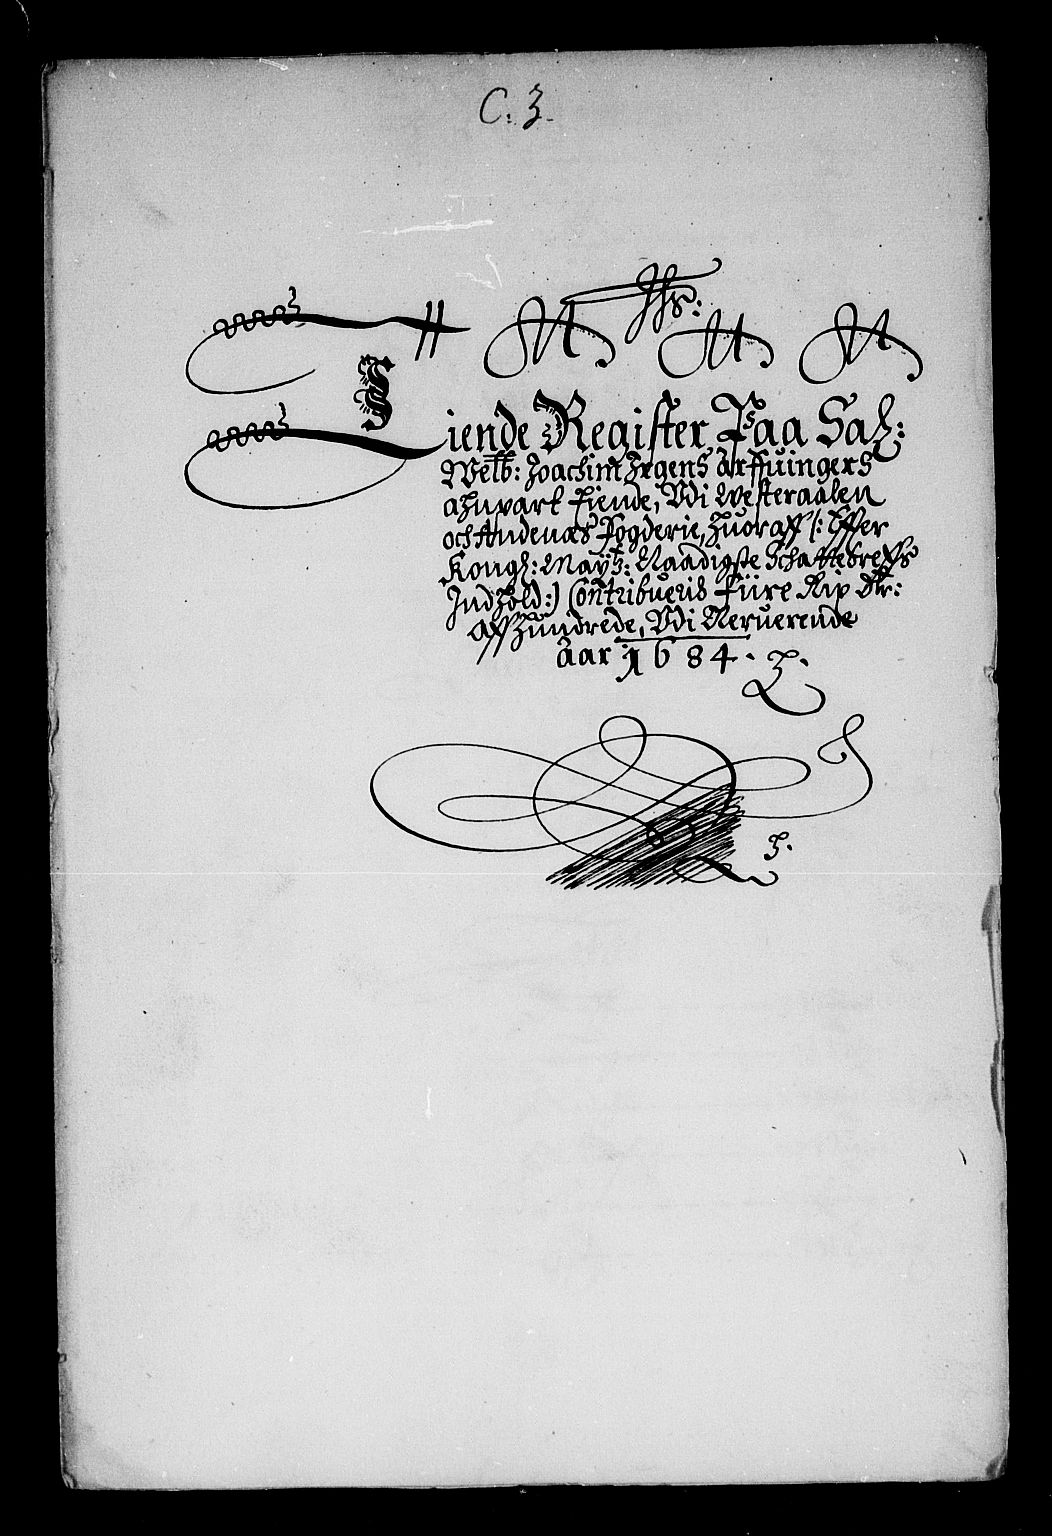 C. 3.
Jhs:
Tiende Register Paa Sal:
Welb: Joachim Irgens Arffuingers
Anpart Tiende, Udi Westeraalen
och Andenæs Fogderie, huoraff /: Effter
Kongl: Mayts: Naadigste Schattebreffs
Indhold:) Contribueris Fiire Rix dlr:
Aff hundrede, Udi Neruerende
Aar 1684.